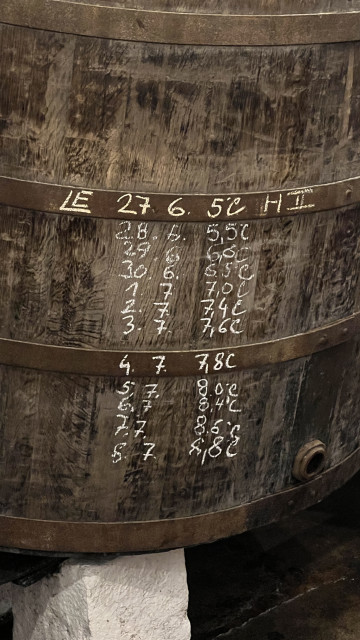 LE 27. 6. 5C H II
28. 6. 5,5C
29. 6 6,0C
30. 6. 6,5C
1. 7 7,0C
2. 7. 7,4C
3. 7. 7,6C
4. 7. 7,8C
5. 7. 8,0C
6. 7 8,4C
7. 7 8,6C
8. 7 8,8C